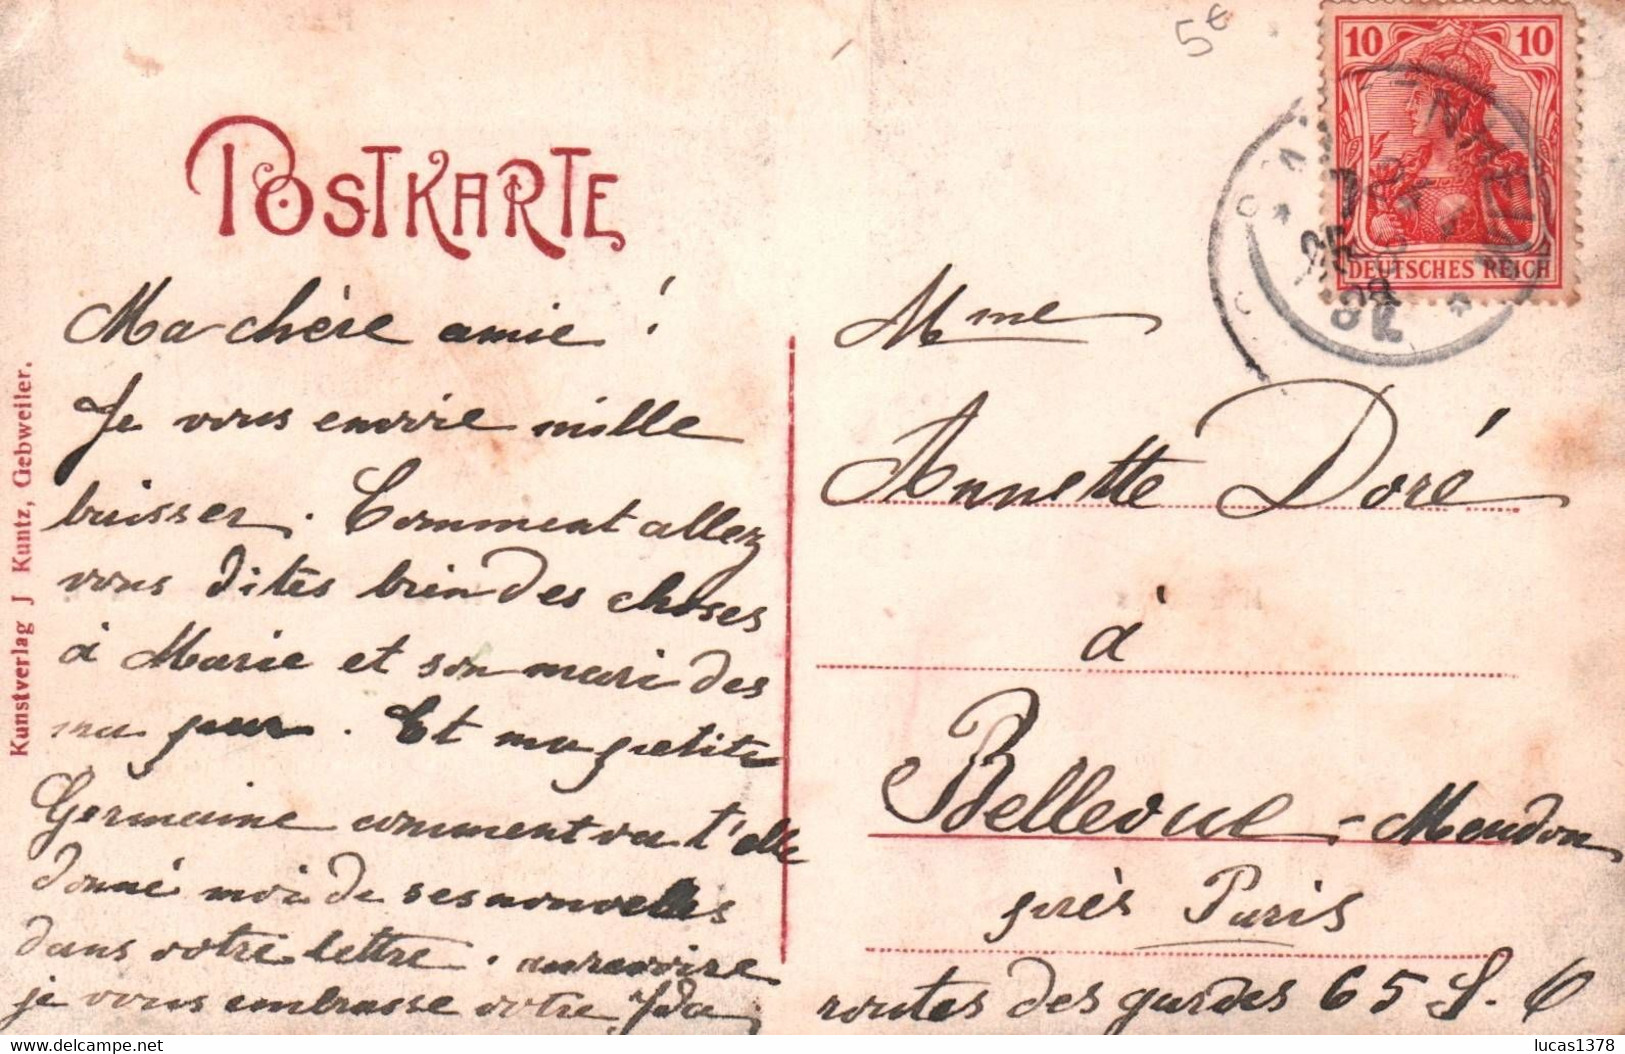 5€
10 10
DEUTSCHES REICH
POSTKARTE
Ma chère amie !
Je vous envoie mille
baisser. Comment allez
vous dites bien des choses
à Marie et son mari des
ma par. Et ma petite
Germaine comment va t'elle
donné moi de ses nouvelles
dans votre lettre. aurevoire
je vous embrasse votre Ida
Kunstverlag J Kuntz, Gebweiler.
Mme
Annette Doré
à
Bellevue - Meudon
près Paris
routes des gardes 65 S. O
lucas1378